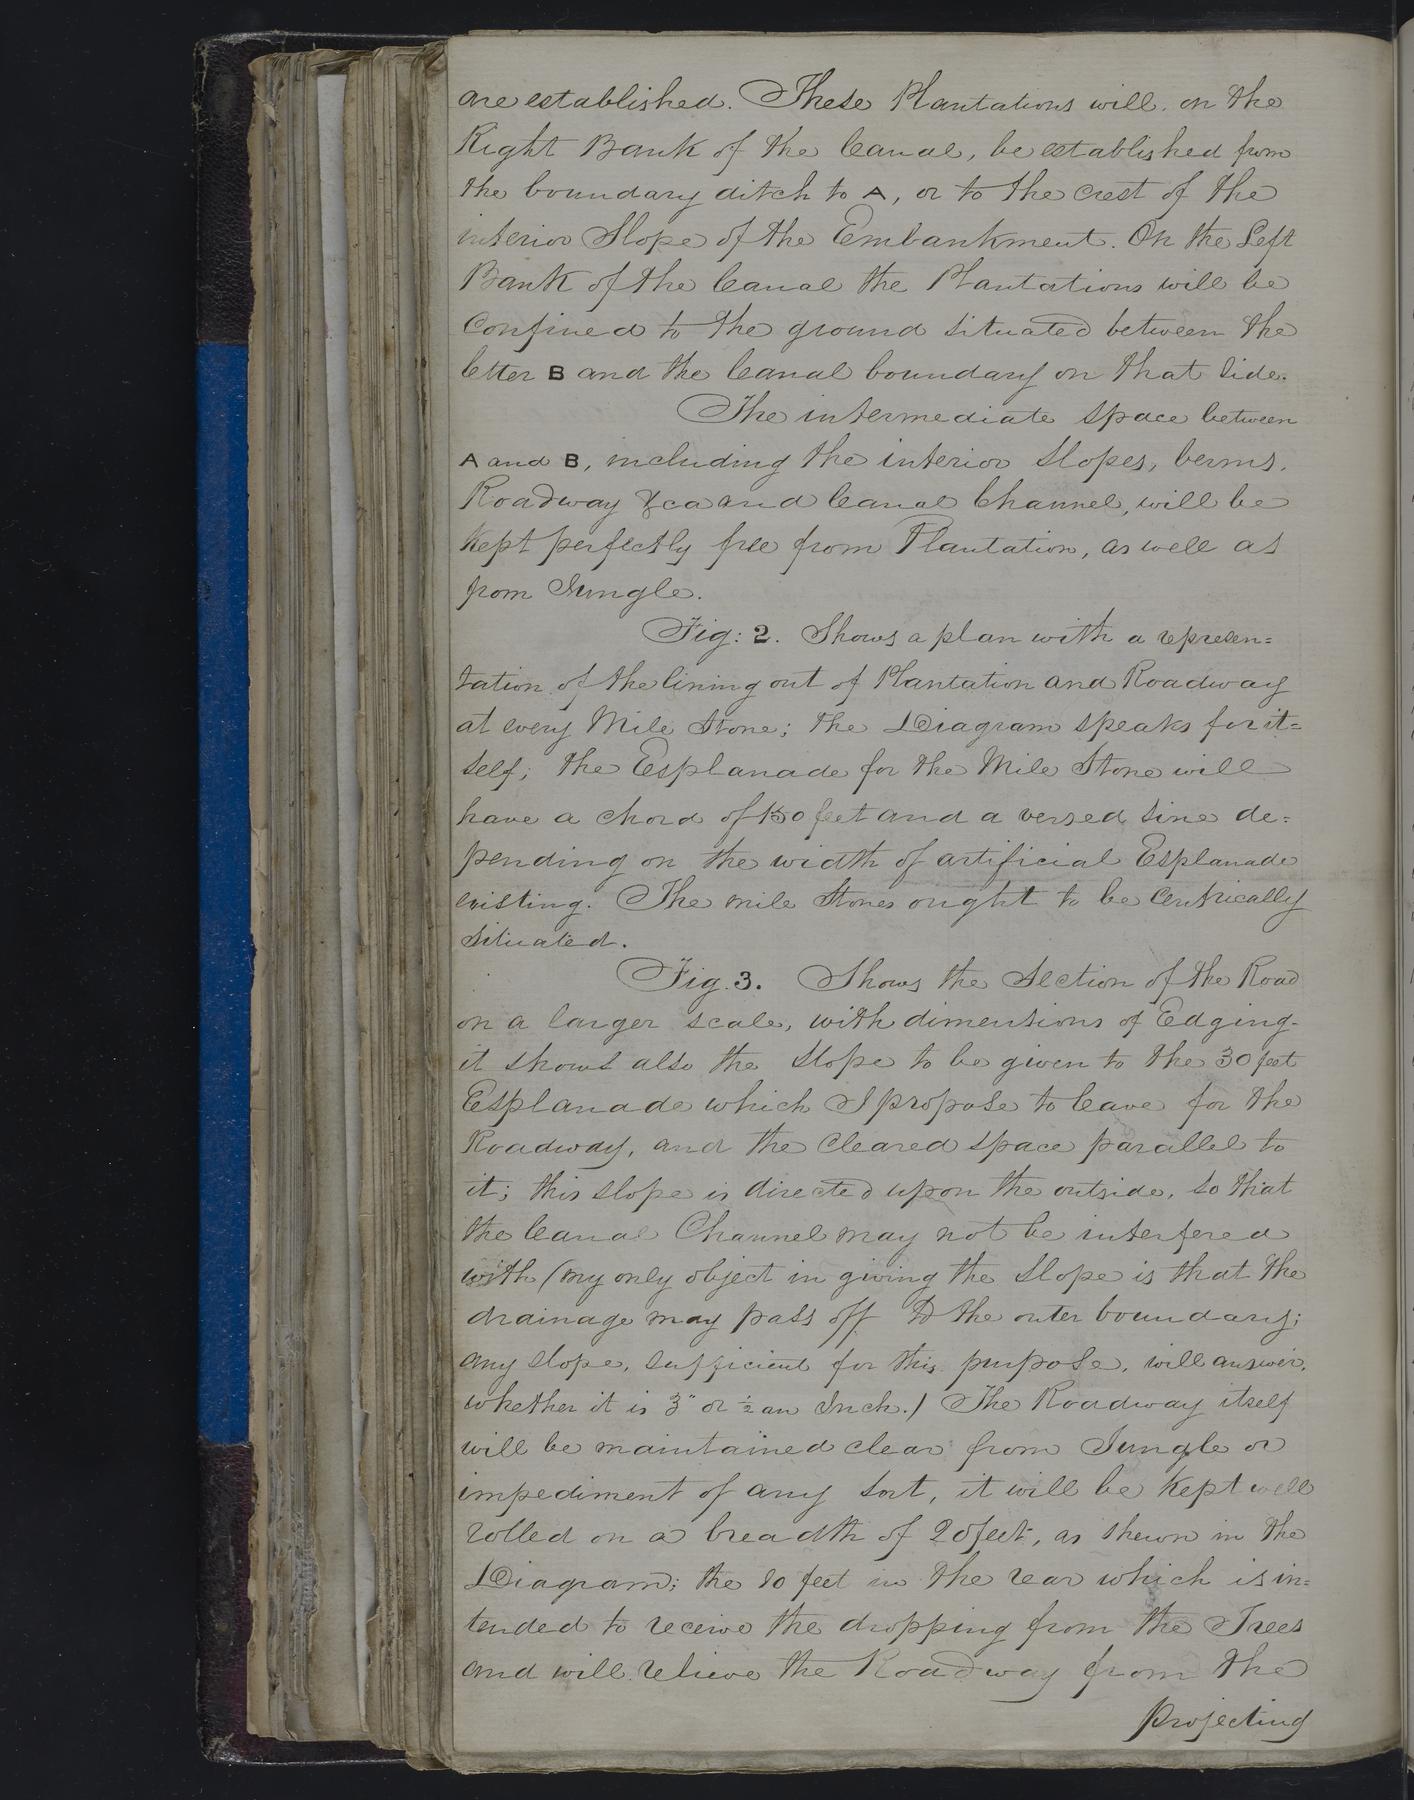 are established. These Plantations will, on the
Right Bank of the Canal, be established from
the boundary ditch to A, or to the crest of the
interior Slope of the Embankment. On the Left
Bank of the Canal the Plantations will be
confined to the ground situated between the
letter B and the Canal boundary on that side.
The intermediate space between
A and B, including the interior slopes, berms,
Roadway &ca and Canal Channel, will be
kept perfectly free from Plantation, as well as
from Jungle.
Fig: 2. Shows a plan with a represen=
tation of the lining out of Plantation and Roadway
at every Mile Stone; the Diagram speaks for it=
self; the Esplanade for the Mile Stone will
have a chord of 150 feet and a versed sine de=
pending on the width of artificial Esplanade
existing. The mile Stones ought to be centrically
situated.
Fig. 3. Shows the Section of the Road
on a larger scale, with dimensions of Edging-
it shows also the slope to be given to the 30 feet
Esplanade which I propose to leave for the
Roadway, and the cleared space parallel to
it; this slope is directed upon the outside, so that
the Canal Channel may not be interfered
with (my only object in giving the slope is that the
drainage may pass off to the outer boundary;
any slope, sufficient for this purpose, will answer,
whether it is 3" or ½ an Inch.) The Roadway itself
will be maintained clear from Jungle or
impediment of any sort, it will be kept well
rolled on a breadth of 20 feet, as shewn in the
Diagram; the 10 feet in the rear which is in=
tended to receive the dropping from the Trees
and will relieve the Roadway from the
projecting